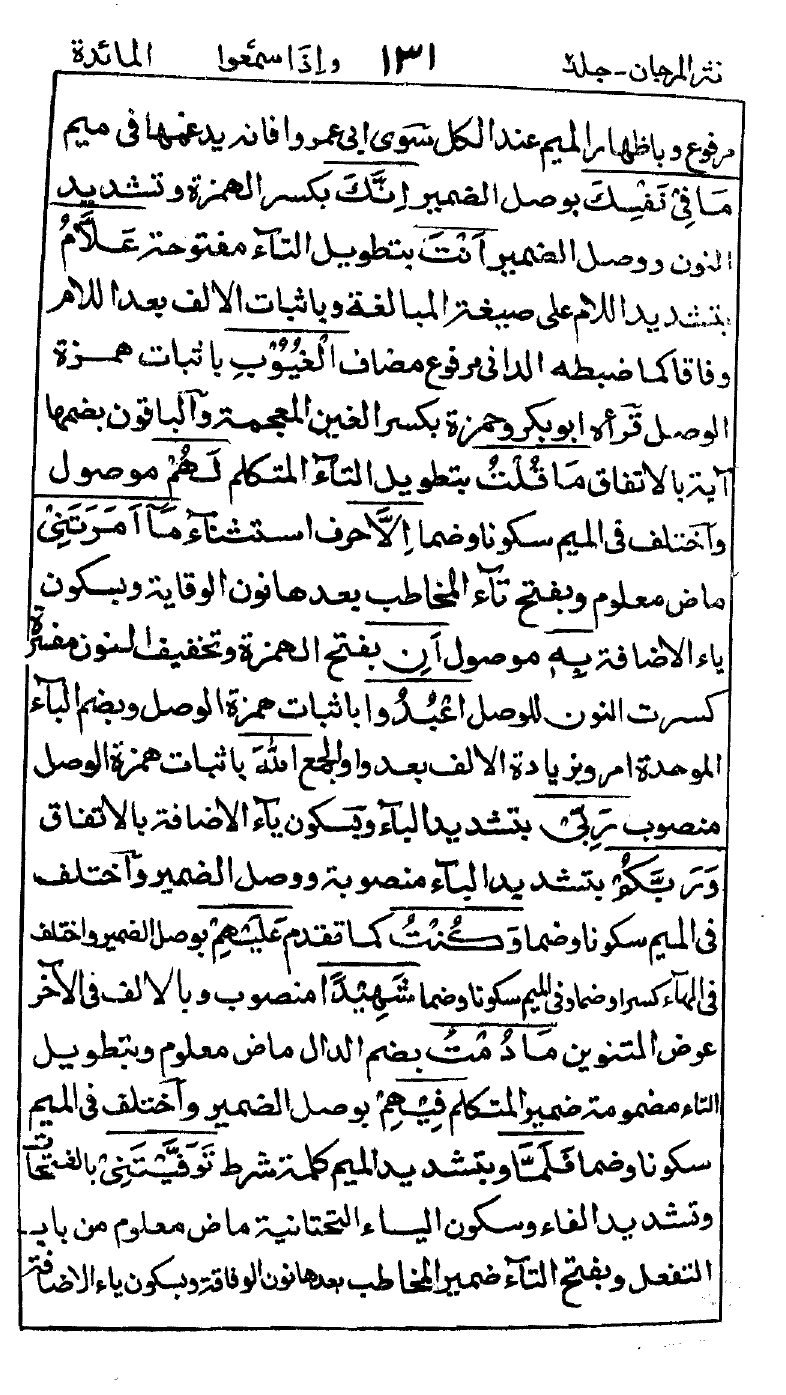 نثر المرجان-جلد ١٣١ واذا سمعوا المائدة
مرفوع وباظهار الميم عند الكل سوى ابى عمرو فانه يدغمها فى ميم
مَا فِىْ نَفْسِكَ بوصل الضمير اِنَّكَ بكسر الهمزة وتشديد
النون ووصل الضمير اَنْتَ بتطويل التآء مفتوحة عَلَّامُ
بتشديد اللام على صيغة المبالغة وباثبات الالف بعد اللام
وفاقا كما ضبطه الدانى مرفوع مضاف الْغُيُوْبِ باثبات همزة
الوصل قرأه ابوبكر وحمزة بكسر الغين المعجمة والباقون بضمها
آية بالاتفاق مَا قُلْتُ بتطويل التآء المتكلم لَهُمْ موصول
وآختلف فى الميم سكونا وضما اِلَّا حرف استثنآء مَآ اَمَرْتَنِىْ
ماض معلوم وبفتح تآء المخاطب بعدها نون الوقاية وبسكون
ياء الاضافة بِهٖ موصول اَنِ بفتح الهمزة وتخفيف النون مفسرة
كسرت النون للوصل اعْبُدُوا باثبات همزة الوصل وبضم البآء
الموحدة امر وبزيادة الالف بعد واو الجمع اللّٰهَ باثبات همزة الوصل
منصوب رَبِّىْ بتشديد البآء وبسكون يآء الاضافة بالاتفاق
وَرَبَّكُمْ بتشديد البآء منصوبة ووصل الضمير وآختلف
فى الميم سكونا وضما وَكُنْتُ كما تقدم عَلَيْهِمْ بوصل الضمير واختلف
فى الهآء كسرا وضما وفى الميم سكونا وضما شَهِيْدًا منصوب وبالالف فى الآخر
عوض التنوين مَا دُمْتُ بضم الدال ماض معلوم وبتطويل
التاء مضمومة ضمير المتكلم فِيْهِمْ بوصل الضمير وآختلف فى الميم
سكونا وضما فَلَمَّا وبتشديد الميم كلمة شرط تَوَفَّيْتَنِىْ بالفتحات
وتشديد الفاء وسكون الياء التحتانية ماض معلوم من باب
التفعل وبفتح التآء ضمير المخاطب بعدها نون الوقاية وبسكون ياء الاضافة